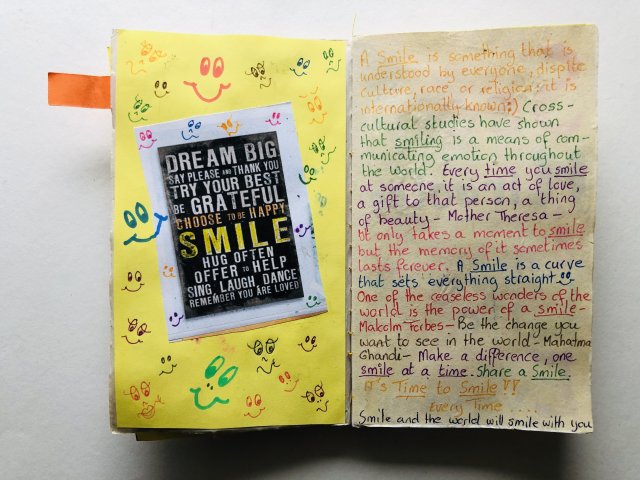 DREAM BIG
SAY PLEASE AND THANK YOU
TRY YOUR BEST
BE GRATEFUL
CHOOSE TO BE HAPPY
SMILE
HUG OFTEN
OFFER TO HELP
SING, LAUGH, DANCE
REMEMBER YOU ARE LOVED
A Smile is something that is
understood by everyone, dispite
culture, race, or religion; it is
internationally known:) Cross-
cultural studies have shown
that smiling is a means of com-
municating emotion throughout
the world. Every time you smile
at someone, it is an act of love,
a gift to that person, a thing
of beauty - Mother Theresa -
It only takes a moment to smile
but the memory of it sometimes
lasts forever. A Smile is a curve
that sets everything straight
One of the ceaseless wonders of the
world is the power of a smile -
Malcolm Forbes - Be the change you
want to see in the world - Mahatma
Ghandi - Make a difference, one
smile at a time. Share a Smile.
IT'S Time to Smile!!
Every time
Smile and the world will smile with you